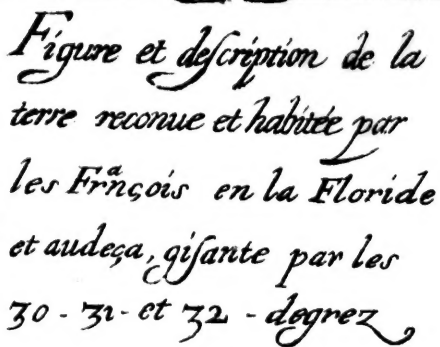 Figure et deſcription de la
terre reconue et habitée par
les Frᵃnçois en la Floride
et audeça, giſante par les
30 - 31 - et 32 - degrez